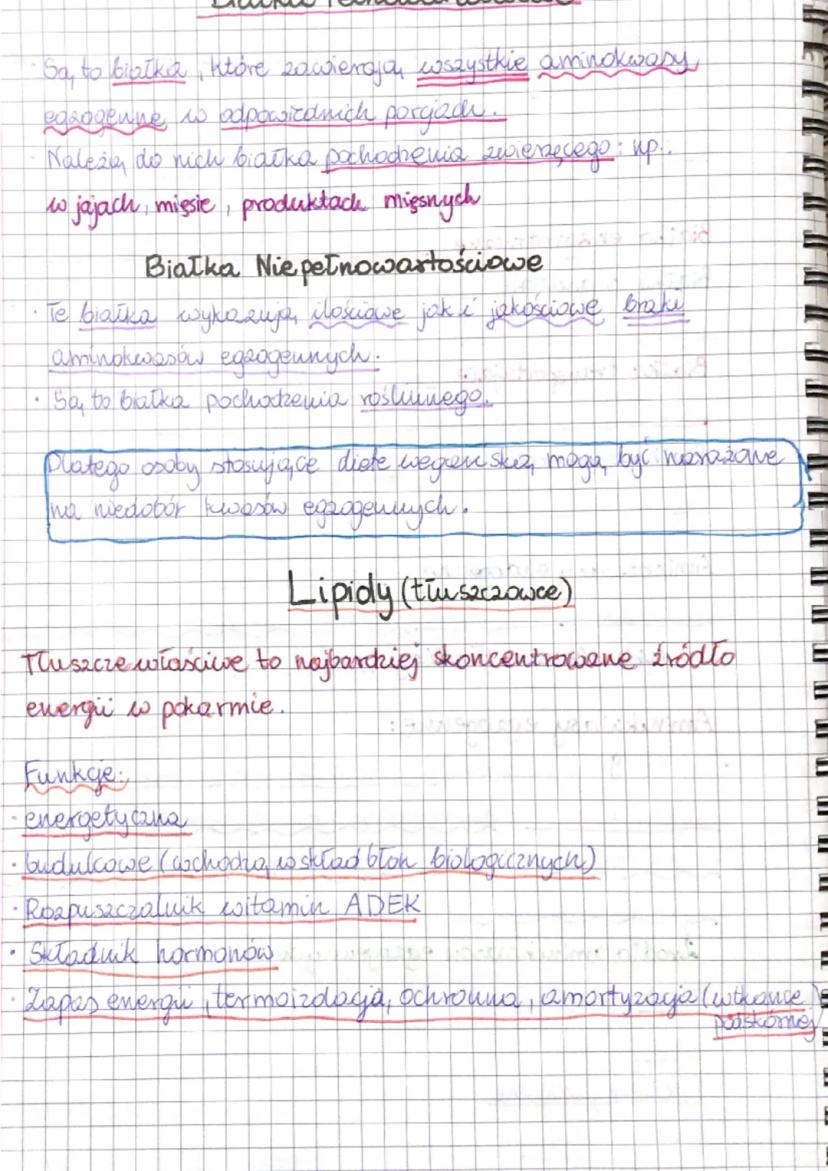 · Są to białka, które zawierają wszystkie aminokwasy
egzogenne w odpowiednich porcjach.
· Należą do nich białka pochodzenia zwierzęcego: np.
w jajach, mięsie, produktach mięsnych
Białka Niepełnowartościowe
· Te białka wykazują ilościowe jak i jakościowe braki
aminokwasów egzogennych.
· Są to białka pochodzenia roślinnego.
Dlatego osoby stosujące dietę wegańską mogą być narażone
na niedobór kwasów egzogennych.
Lipidy (tłuszczowce)
Tłuszcze właściwe to najbardziej skoncentrowane źródło
energii w pokarmie.
Funkcje:
· energetyczna
· budulcowe (wchodzą w skład błon biologicznych)
· Rozpuszczalnik witamin ADEK
· Składnik hormonów
· Zapas energii, termoizolacja, ochronna, amortyzacja (w tkance
podskórnej)